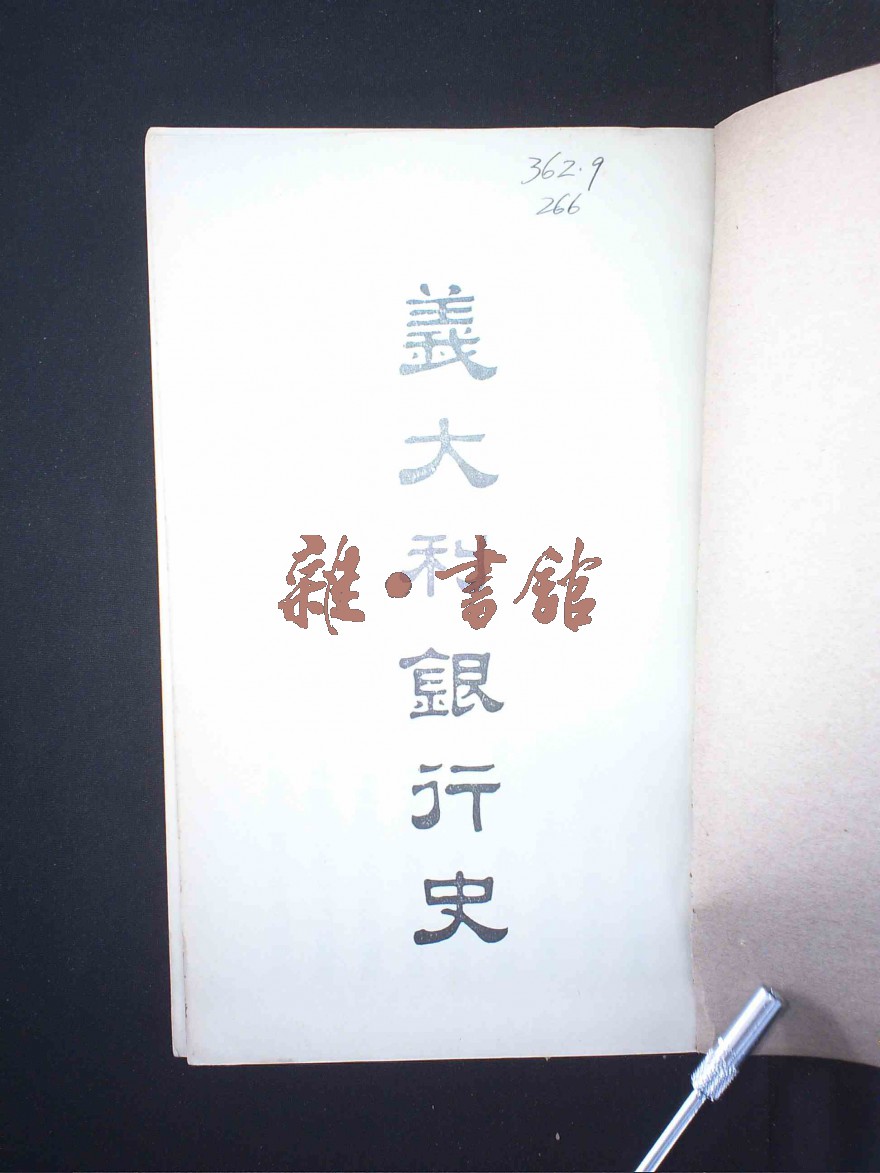 362.9
266
義大利銀行史
雜·書館